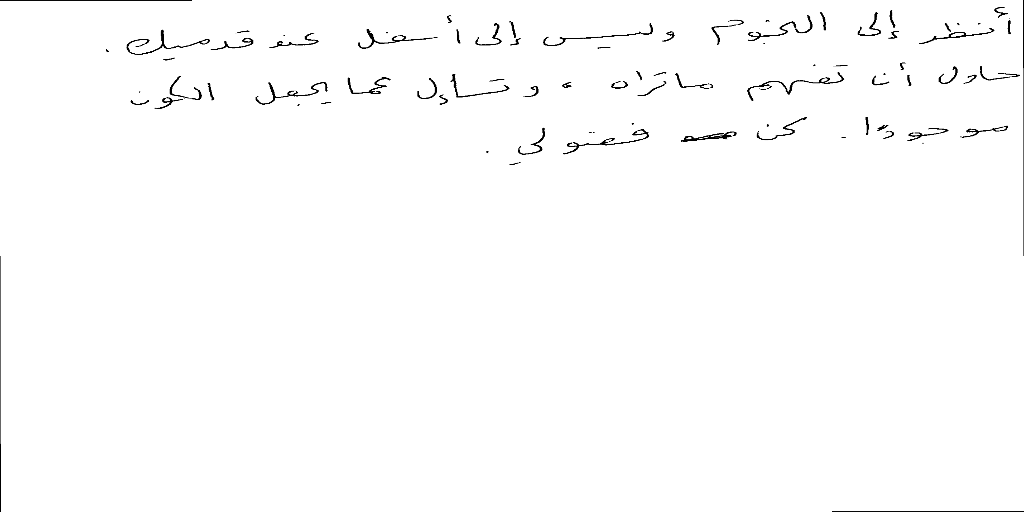 أنظر إلى النجوم وليس إلى أسفل عند قدميك .
حاول أن تفهم ماتراه ، وتساءل عما يجعل الكون
موجودًا . كن فضولي .